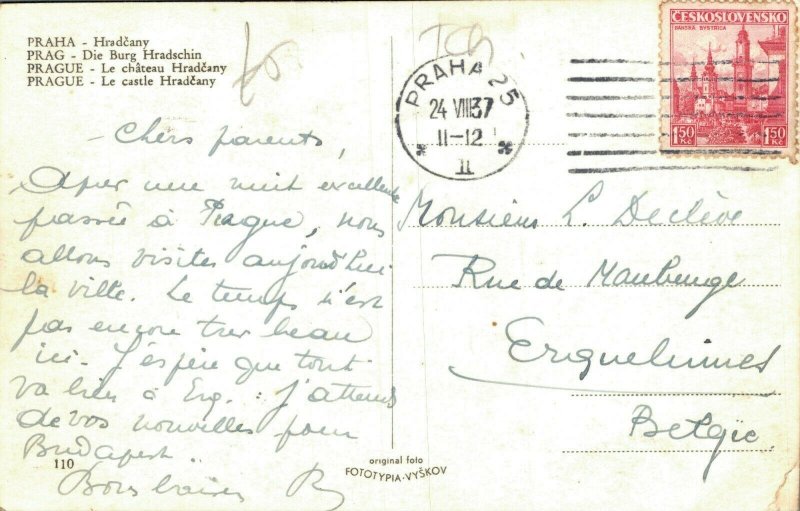 PRAHA - Hradčany
PRAG - Die Burg Hradschin
PRAGUE - Le château Hradčany
PRAGUE - Le castle Hradčany
Chers parents,
Après une nuit excellente
passée à Prague, nous
allons visiter aujourd'hui
la ville. Le temps n'est
pas encore très beau
ici. J'espère que tout
va bien à Erq. : j'attends
de vos nouvelles pour
Budapest.
Bons baisers
110
original foto
FOTOTYPIA-VYŠKOV
Tch
PRAHA 25
24 VIII 37
11-12
II
ČESKOSLOVENSKO
BÁNSKÁ BYSTRICA
1.50 Kč 1.50 Kč
Monsieur L. Declève
Rue de Maubeuge
Erquelinnes
Belgie